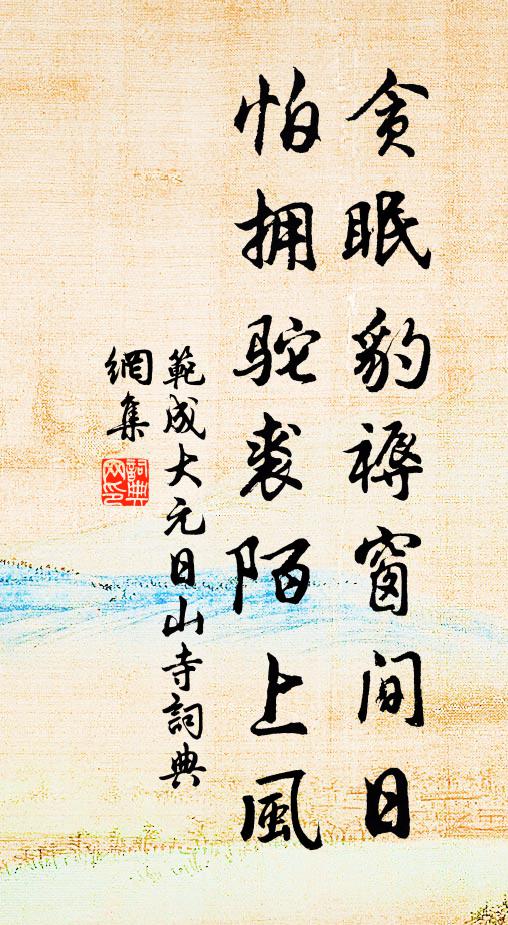 貪眠豹褥窗間日
怕拥駝裘陌上風
範成大元日山寺詞典
網集
詞典網印